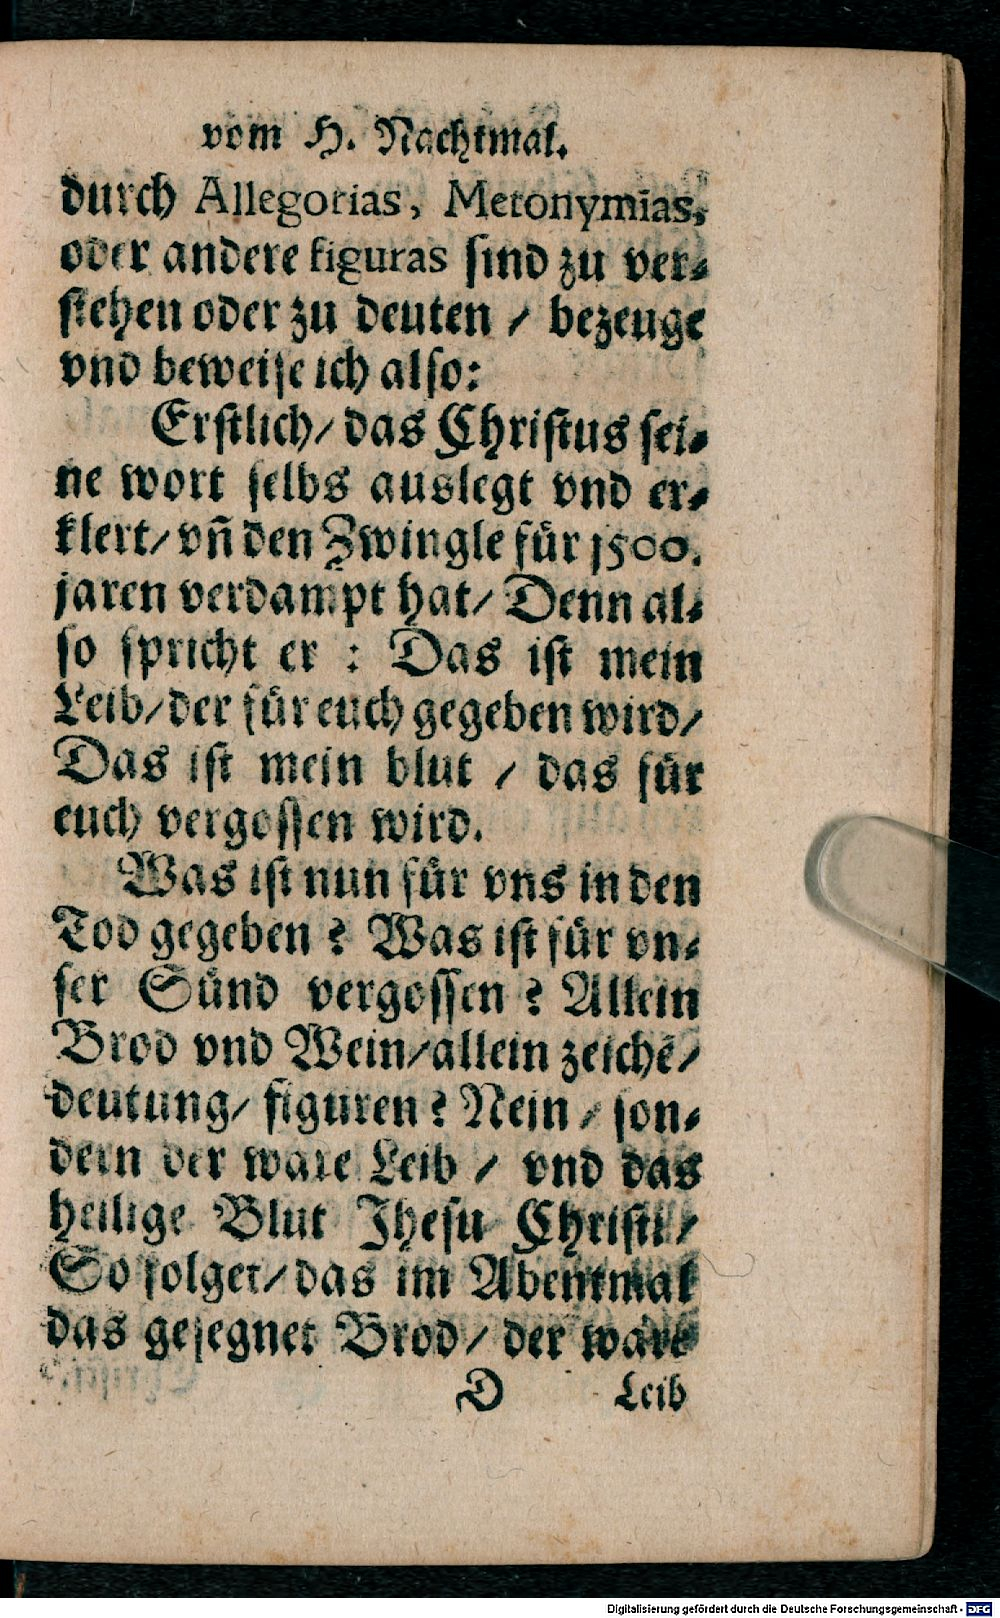 vom H. Nachtmal.
durch Allegorias, Metonymias,
oder andere figuras sind zu ver⸗
stehen oder zu deuten / bezeuge
vnd beweise ich also:
Erstlich/ das Christus sei⸗
ne wort selbs auslegt vnd er⸗
klert/ vn̄ den Zwingle für 1500.
jaren verdampt hat/ Denn al⸗
so spricht er : Das ist mein
Leib/ der für euch gegeben wird/
Das ist mein blut / das für
euch vergossen wird.
Was ist nun für vns in den
Tod gegeben ? Was ist für vn⸗
ser Sünd vergossen ? Allein
Brod vnd Wein/ allein zeichē/
deutung/ figuren ? Nein / son⸗
dern der ware Leib / vnd das
heilige Blut Jhesu Christi /
So folget/ das im Abentmal
das gesegnet Brod/ der ware
D Leib
Digitalisierung gefördert durch die Deutsche Forschungsgemeinschaft - DFG